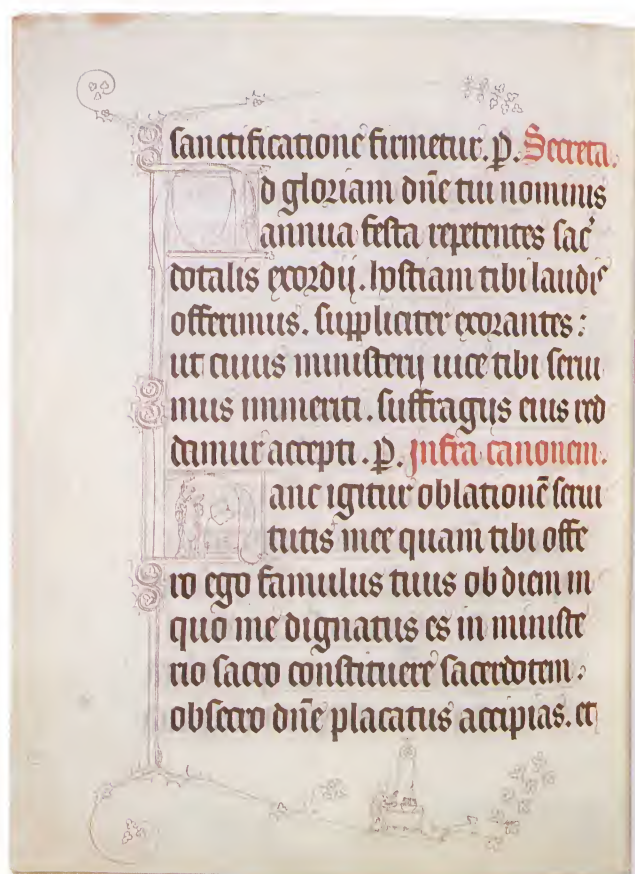 sanctificationē firmetur. p. Secreta.
d gloriam dñe tui nominis
annua festa repetentes sac̾
dotalis exordij. hostiam tibi laudis
offerimus. suppliciter exorantes:
ut cuius ministerij uice tibi serui
mus immeriti. suffragijs eius red
damur accepti. p. Infra canonem.
anc igitur oblationē serui
tutis mee quam tibi offe
ro ego famulus tuus ob diem in
quo me dignatus es in ministe
rio sacro constituere sacerdotem:
obsecro dñe placatus accipias. et